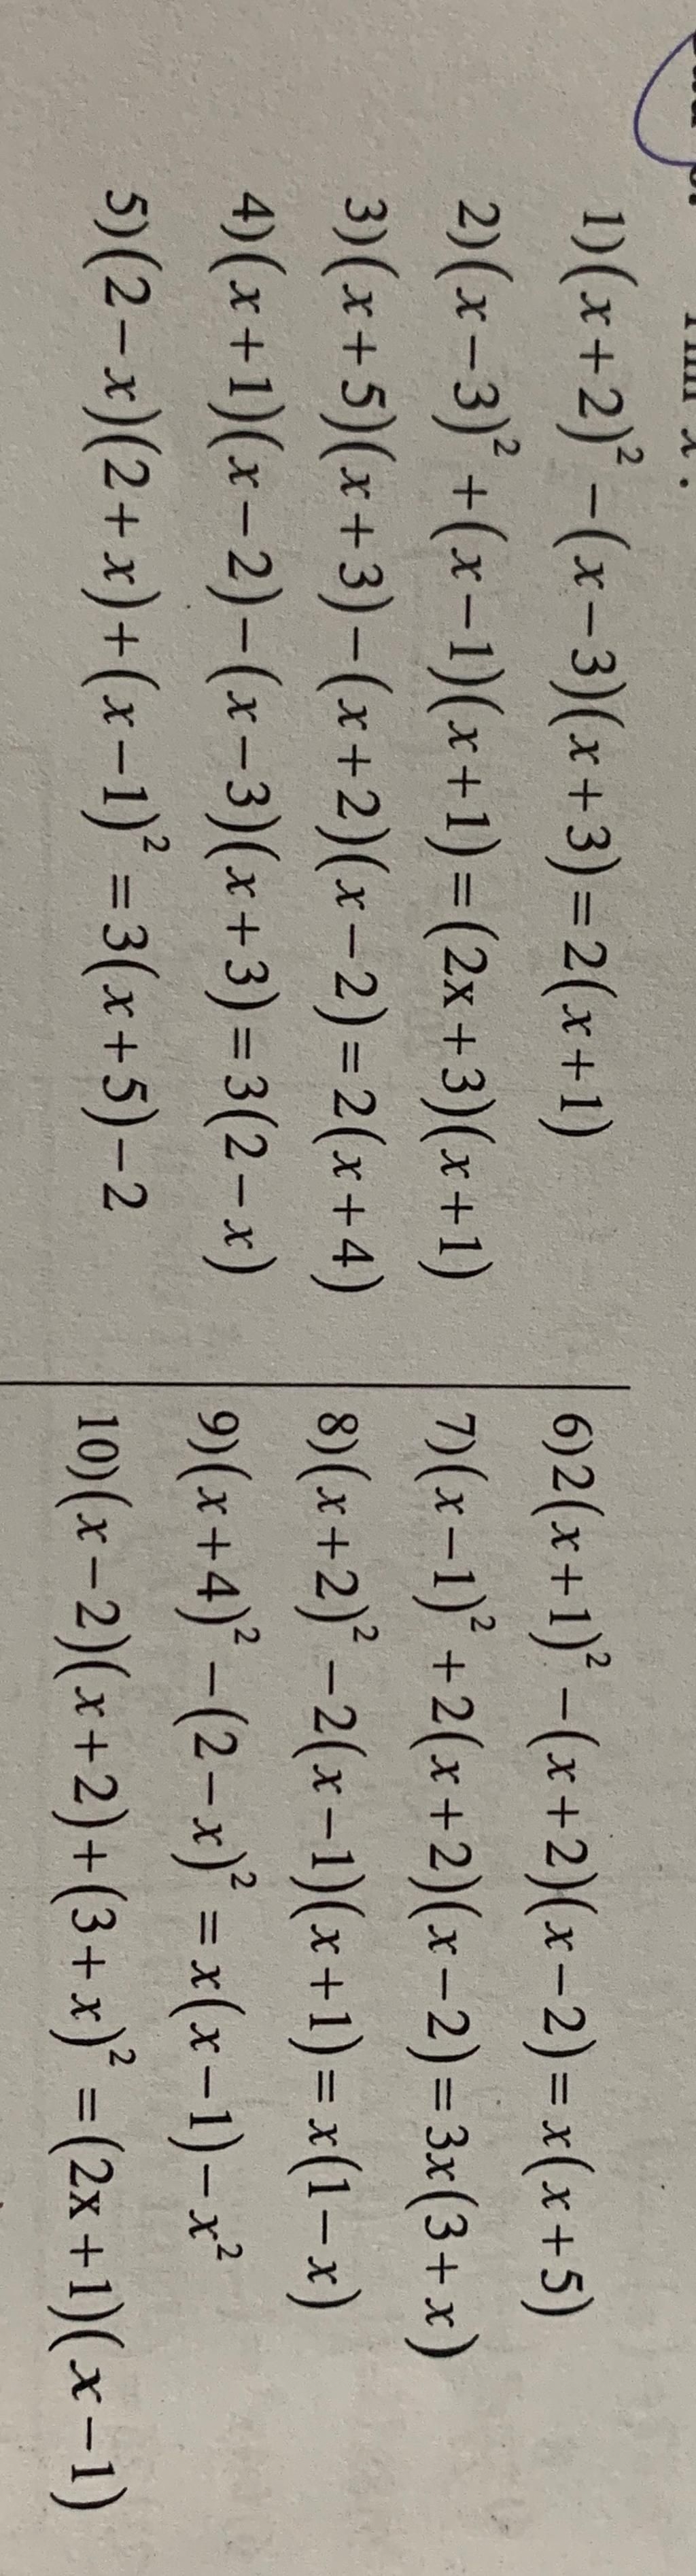 1)(x+2)²-(x-3)(x+3)=2(x+1)
2)(x-3)²+(x-1)(x+1)=(2x+3)(x+1)
3)(x+5)(x+3)-(x+2)(x-2)=2(x+4)
4)(x+1)(x-2)-(x-3)(x+3)=3(2-x)
5)(2-x)(2+x)+(x-1)²=3(x+5)-2
6)2(x+1)²-(x+2)(x-2)=x(x+5)
7)(x-1)²+2(x+2)(x-2)=3x(3+x)
8)(x+2)²-2(x-1)(x+1)=x(1-x)
9)(x+4)²-(2-x)²=x(x-1)-x²
10)(x-2)(x+2)+(3+x)²=(2x+1)(x-1)